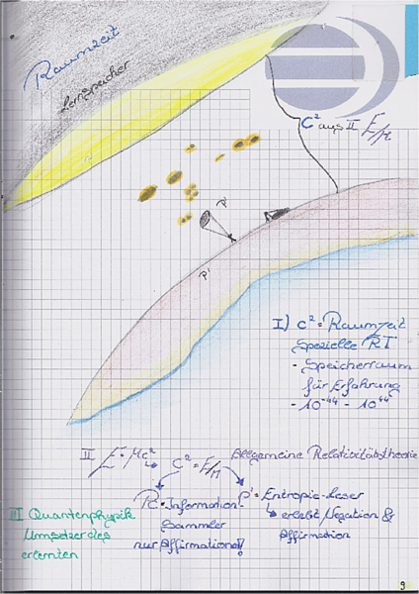 Raumzeit
Lernspeicher
C² aus II E/M
P
P'
I) C² = Raumzeit
Spezielle RT
- Speicherraum
für Erfahrung
- 10⁻⁴⁴ - 10⁴⁴
II E = Mc²
C² = E/M
Allgemeine Relativitätstheorie
= Information-
Sammler
nur Affirmational!
P' = Entropie-Leser
↳ erlebt Negation &
Affirmation
III Quantenphysik
Umsetzer des
erlernten
9